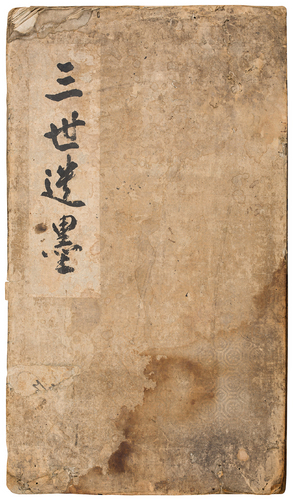 三世遺墨